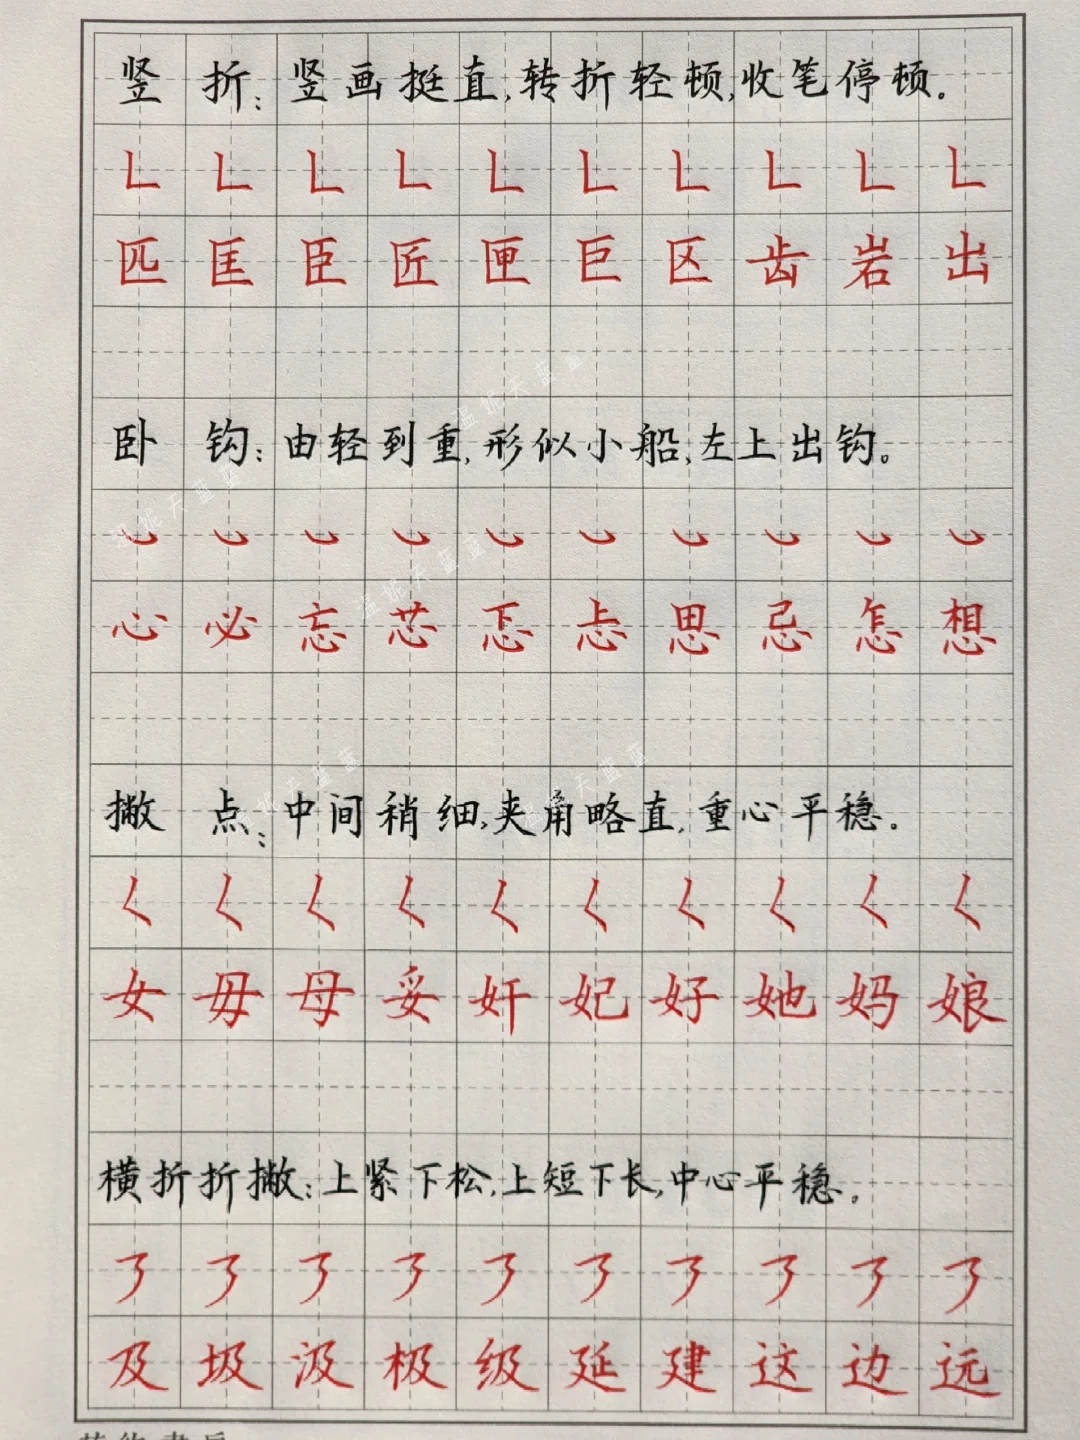 竖折:竖画挺直,转折轻顿,收笔停顿.
匹匡臣匠匣巨区齿岩出
卧钩:由轻到重,形似小船,左上出钩。
心必忘芯忑忐思忌怎想
撇点:中间稍细,夹角略直,重心平稳.
女毋母妥奸妃好她妈娘
横折折撇:上紧下松,上短下长,中心平稳.
及圾汲极级延建这边远